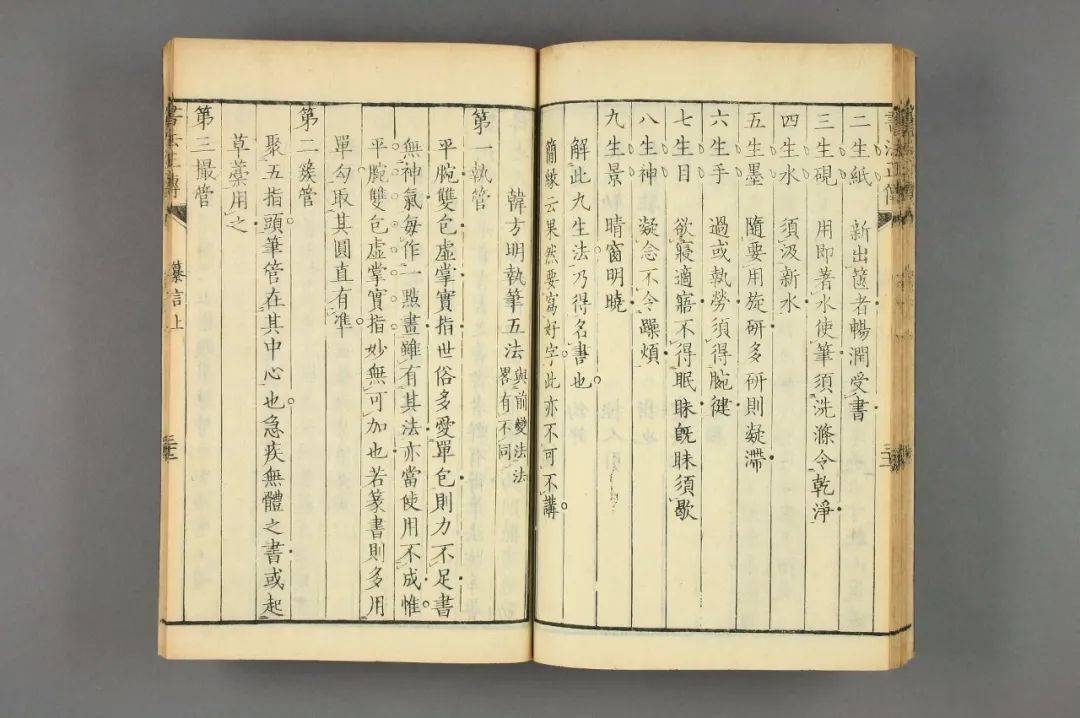 二生紙 新出篋者暢潤受書
三生硯 用即著水使筆須洗滌令乾淨
四生水 須汲新水
五生墨 隨要用旋研多研則凝滯
六生手 過或執勞須得腕健
七生目 欲寢適寤不得眠昧旣昧須歇
八生神 凝念不令躁煩
九生景 晴窗明曉
解此九生法乃得名書也
簡緣云果然要寫好字此亦不可不講
韓方明執筆五法 與前變法法畧有不同
第一執管
平腕雙包虛掌實指世俗多愛單包則力不足書
無神氣每作一點畫雖有其法亦當使用不成惟
平腕雙包虛掌實指妙無可加也若篆書則多用
單勾取其圓直有準
第二簇管
聚五指頭筆管在其中心也急疾無體之書或起
草藁用之
第三撮管
書法正傳
纂言上